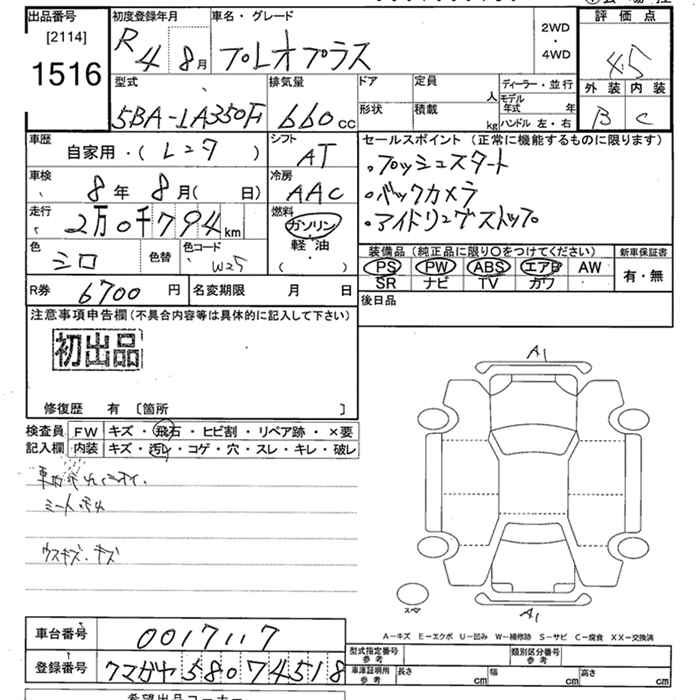 出品番号
[2114]
1516
初度登録年月
R 4 8月
車名・グレード
プレオプラス
2WD
・
4WD
評価点
4.5
外装 内装
B C
型式
5BA-LA350F
排気量
660cc
ドア
形状
定員 人
積載 kg
ディーラー・並行
モデル年式 年
ハンドル 左・右
車歴
自家用・( レンタ )
シフト
AT
車検
8年 8月( 日)
冷房
AAC
走行
2万0千794km
燃料
ガソリン
・
軽油
( )
色
シロ
色替
色コード
W25
R券 6700円
名変期限 月 日
セールスポイント(正常に機能するものに限ります)
・プッシュスタート
・バックカメラ
・アイドリングストップ
装備品(純正品に限り○をつけてください)
新車保証書
PS PW ABS エアB AW
SR ナビ TV カワ
有・無
後日品
注意事項申告欄(不具合内容等は具体的に記入して下さい)
初出品
修復歴 有 〔箇所 〕
検査員記入欄
FW キズ・飛石・ヒビ割・リペア跡・×要
内装 キズ・汚レ・コゲ・穴・スレ・キレ・破レ
シート汚れ
ウスキズ・キズ
A1
A1
スペア
A-キズ E-エクボ U-凹み W-補修跡 S-サビ C-腐食 XX-交換済
車台番号 0017117
登録番号 クマガヤ 580 7 4518
型式指定番号 参考
類別区分番号 参考
車庫証明用 参考
長さ cm
幅 cm
高さ cm
希望出品コーナー